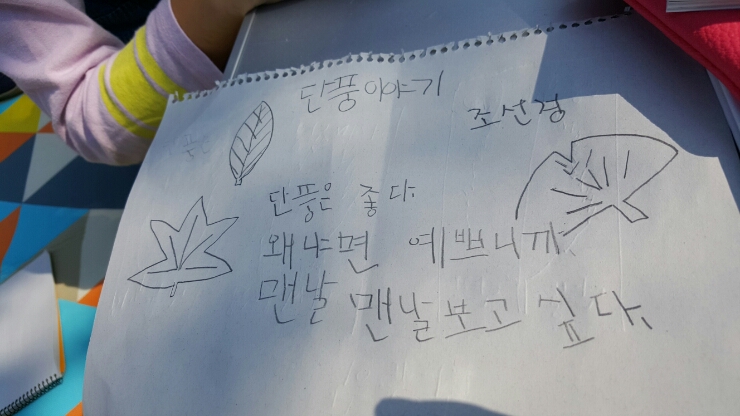 단풍이야기
조선경
단풍은 좋다.
왜냐면 예쁘니까.
맨날 맨날보고싶다.